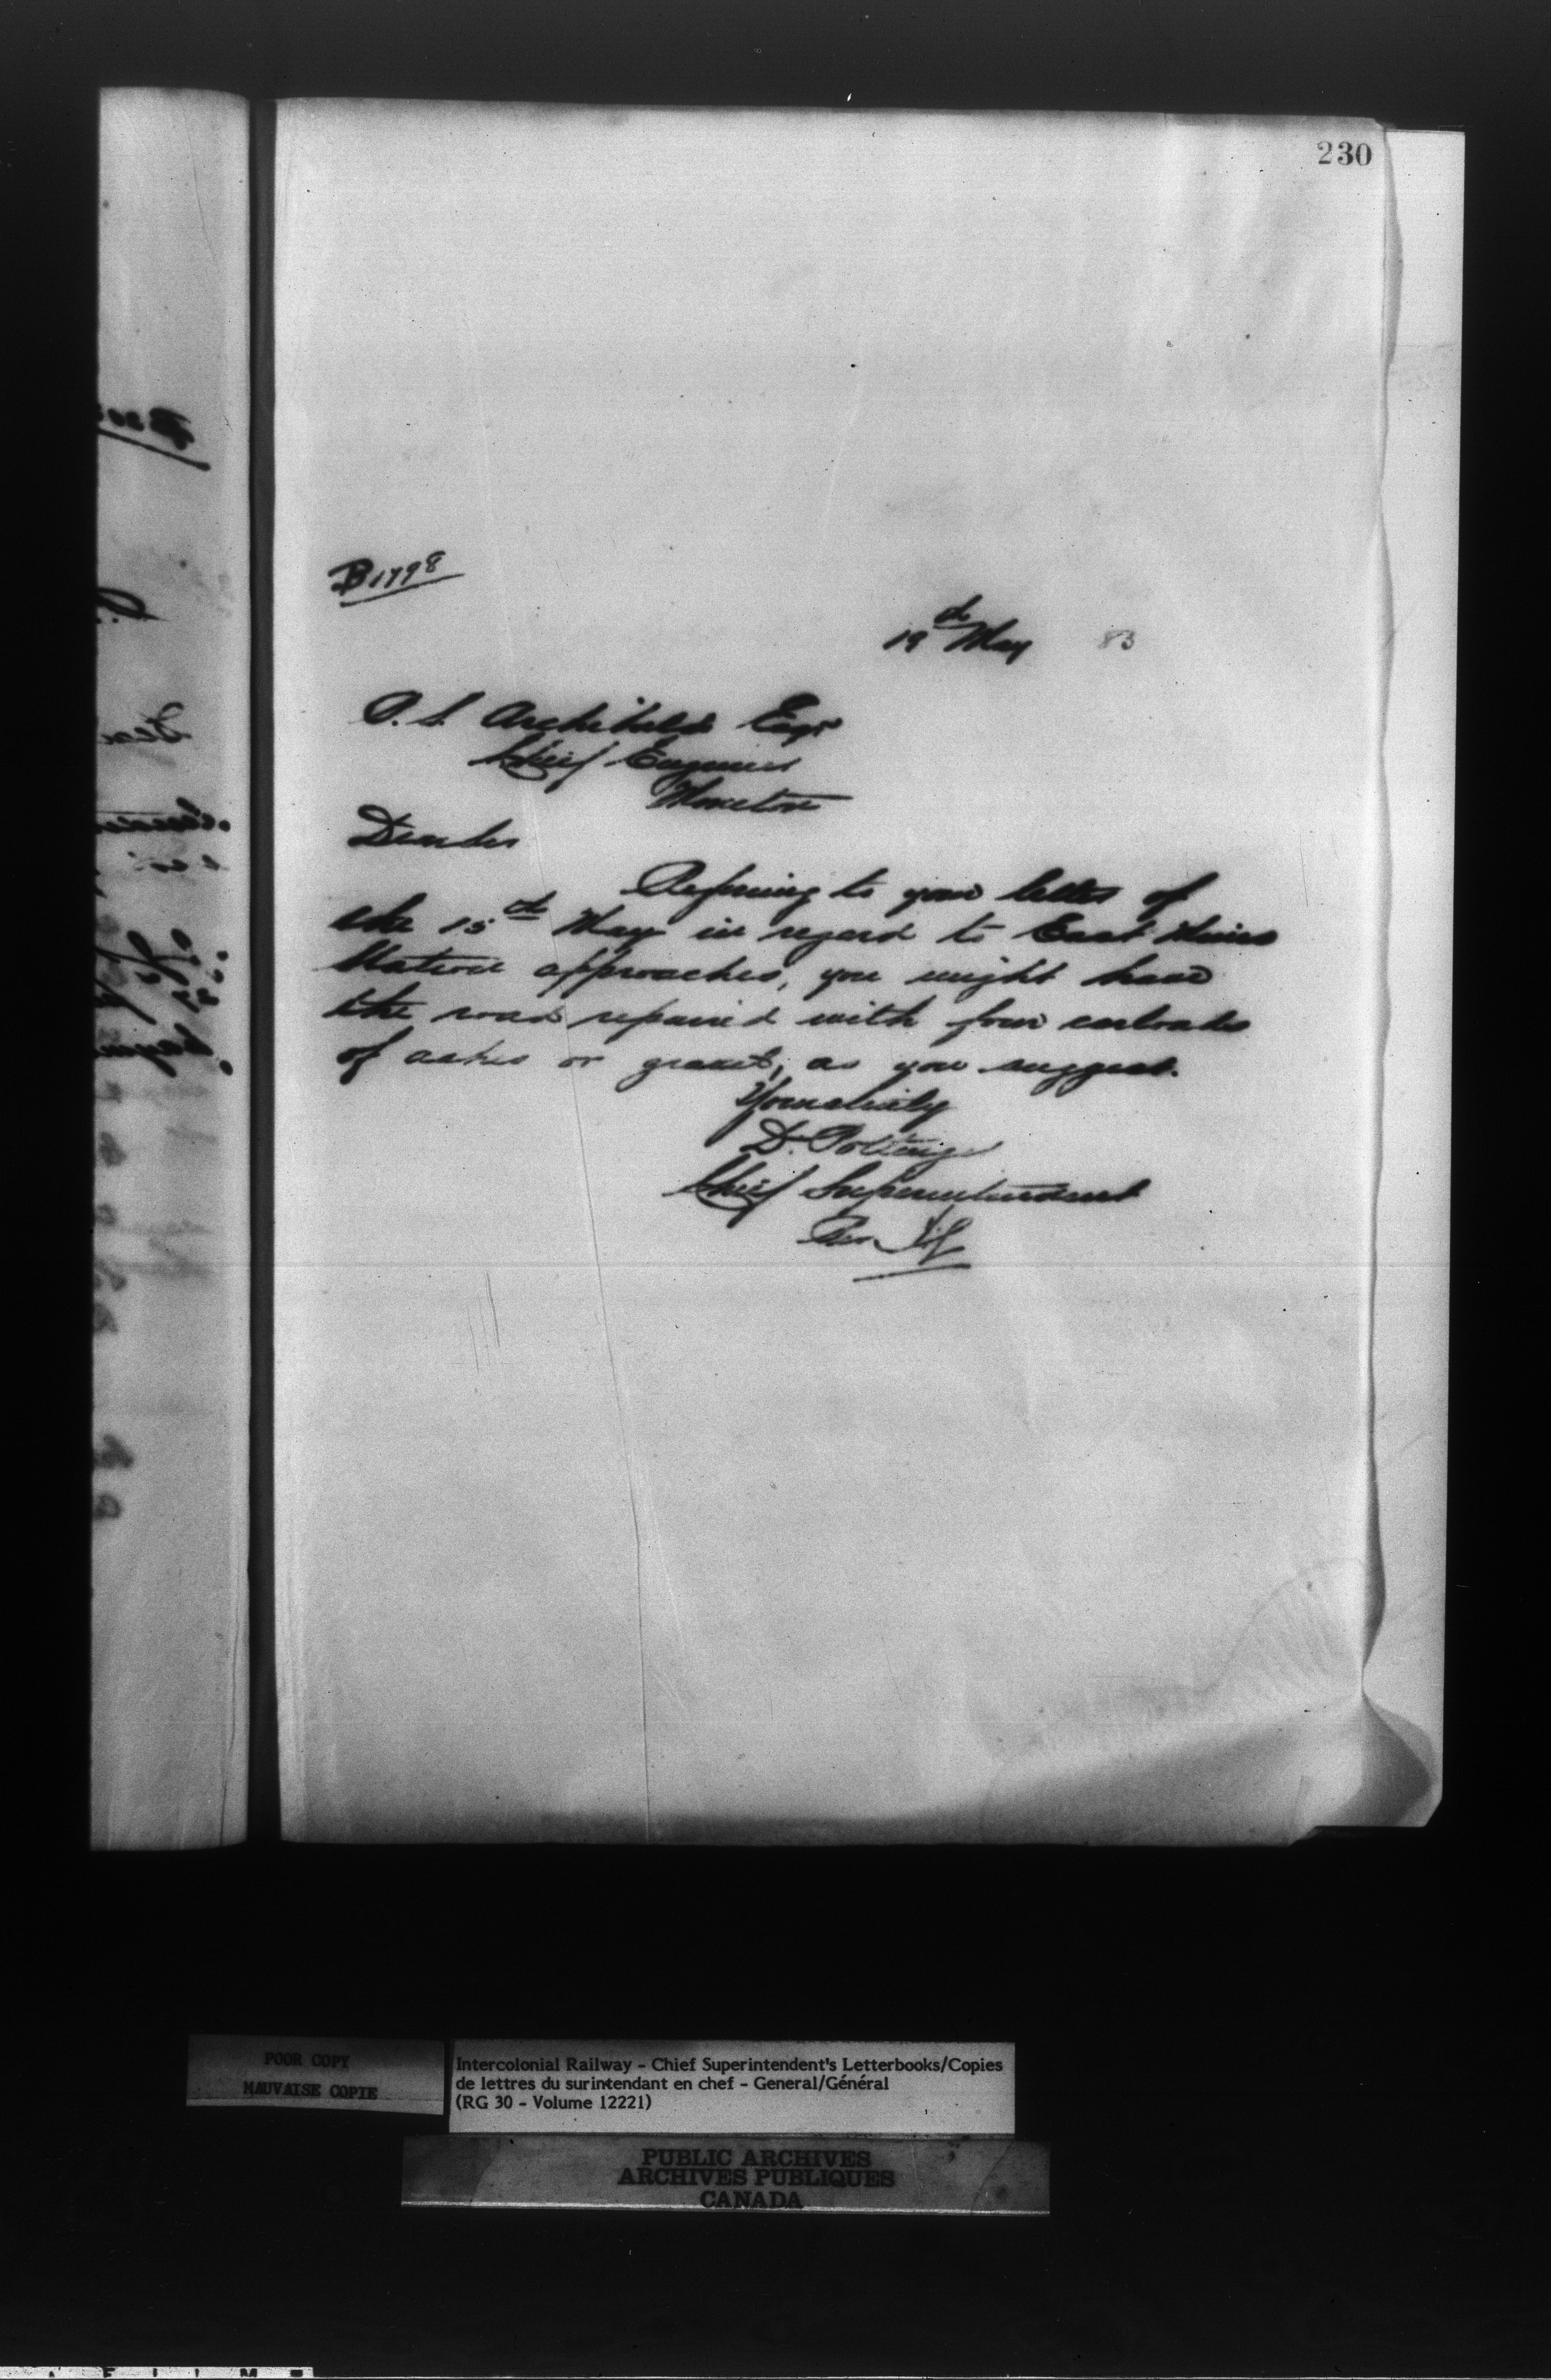 230
B1798
19th May 83
P. S. Archibald Esqr
Chief Engineer
Moncton
Dear Sir
Referring to your letter of
the 15th May in regard to East Mines
Station approaches, you might have
the road repaired with four carloads
of ashes or gravel, as you suggest.
Yours truly
D. Pottinger
Chief Superintendent
Per
POOR COPY
MAUVAISE COPIE
Intercolonial Railway - Chief Superintendent's Letterbooks/Copies
de lettres du surintendant en chef - General/Général
(RG 30 - Volume 12221)
PUBLIC ARCHIVES
ARCHIVES PUBLIQUES
CANADA